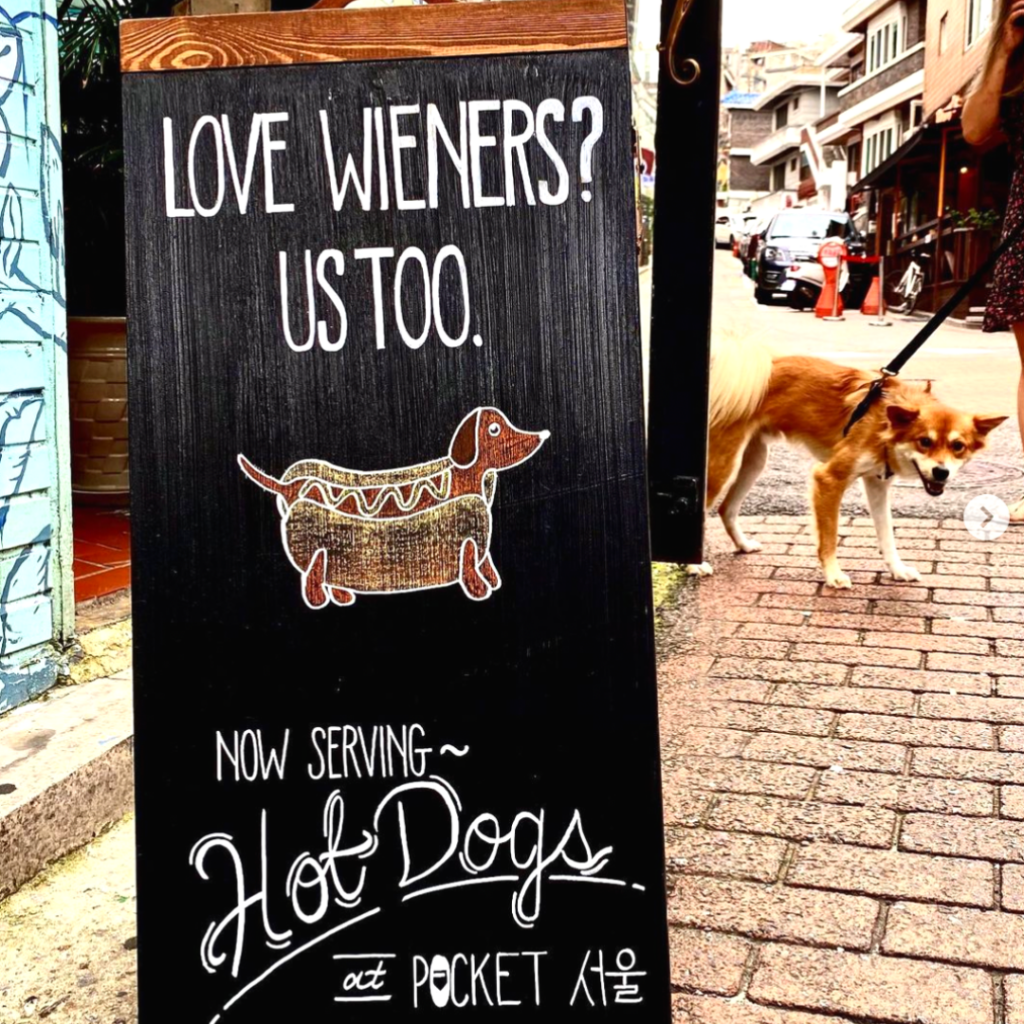 LOVE WIENERS?
US TOO.
NOW SERVING~
Hot Dogs
at POCKET 서울